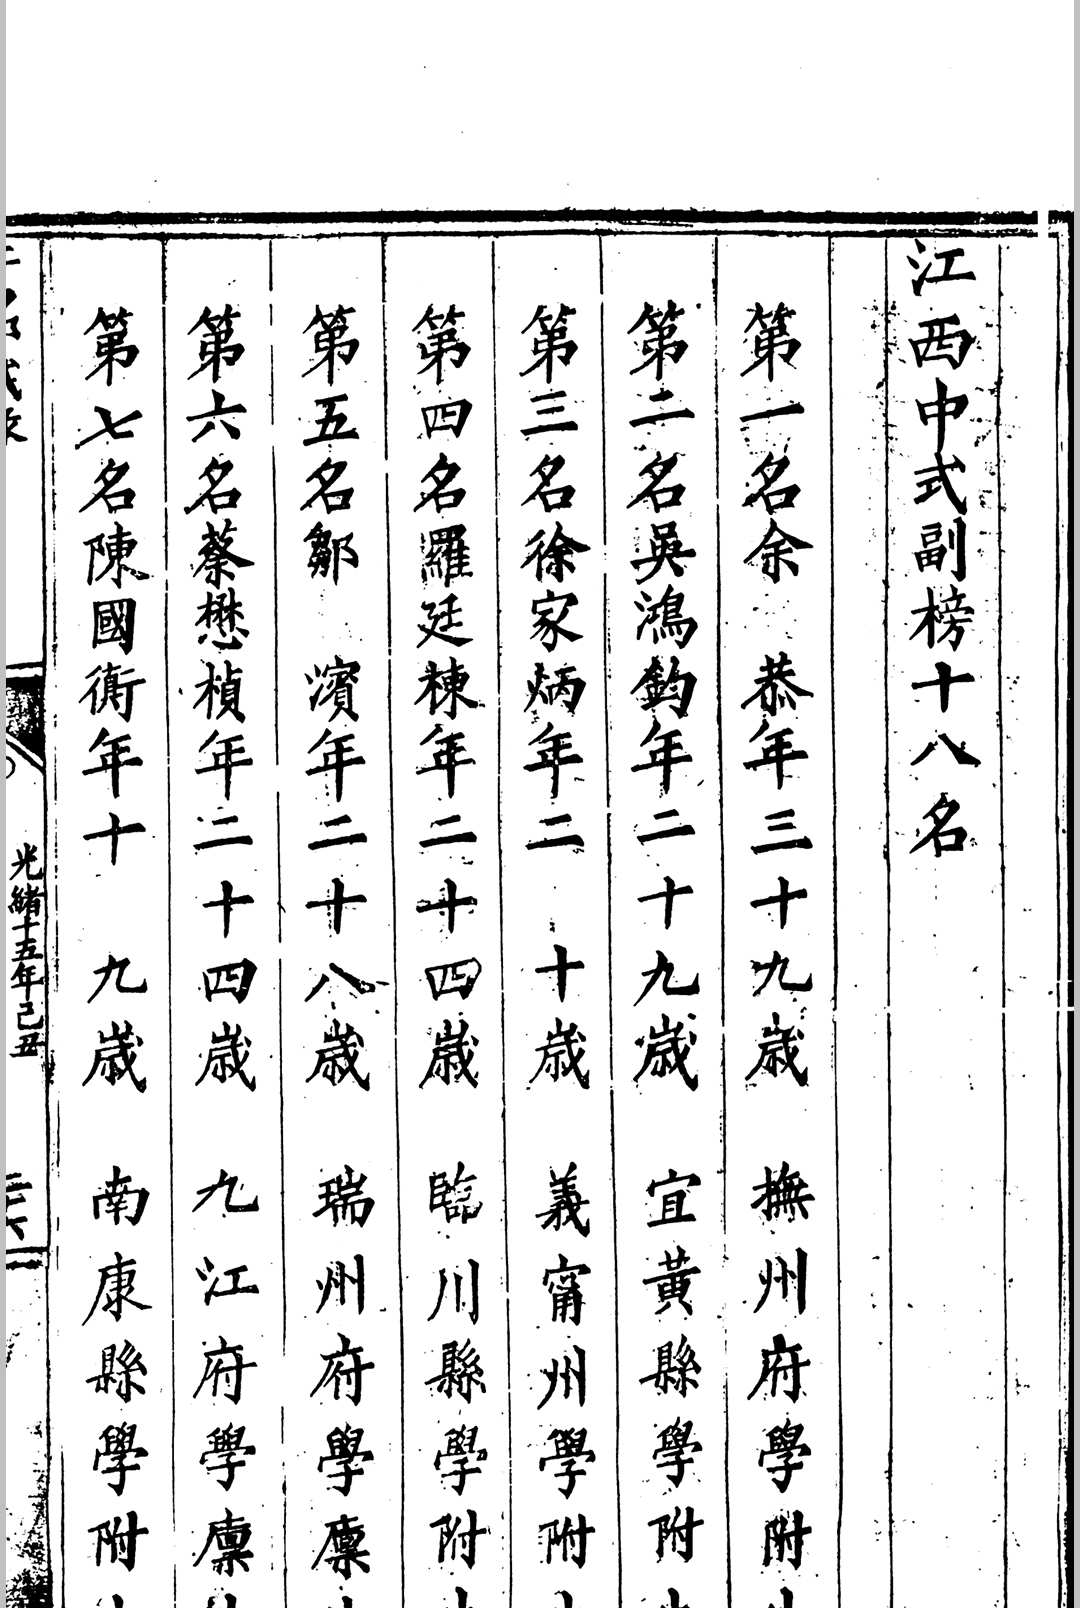 江西中式副榜十八名
第一名余　恭年三十九歲　撫州府學附
第二名吳鴻鈞年二十九歲　宜黃縣學附
第三名徐家炳年二　十歲　義甯州學附
第四名羅廷棟年二十四歲　臨川縣學附
第五名鄒　濱年二十八歲　瑞州府學廩
第六名蔡懋楨年二十四歲　九江府學廩
第七名陳國衡年十　九歲　南康縣學附
光緒十五年己丑